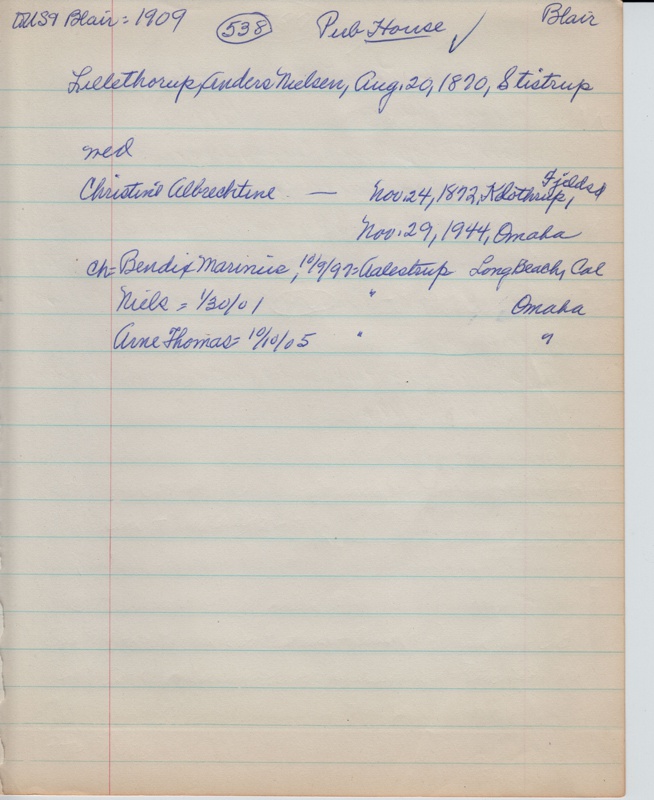 USA Blair = 1909 538 Pub House ✓ Blair
Lillethorup, Anders Nielsen, Aug. 20, 1870, Stistrup
med
Christine Albrechtine — Nov. 24, 1872, Klothrup, Fjeldsø
Nov. 29, 1944, Omaha
ch= Bendix Marinus, 10/9/97= Aalestrup Long Beach, Cal
Niels = 1/30/01 " Omaha
Arne Thomas= 10/10/05 " "